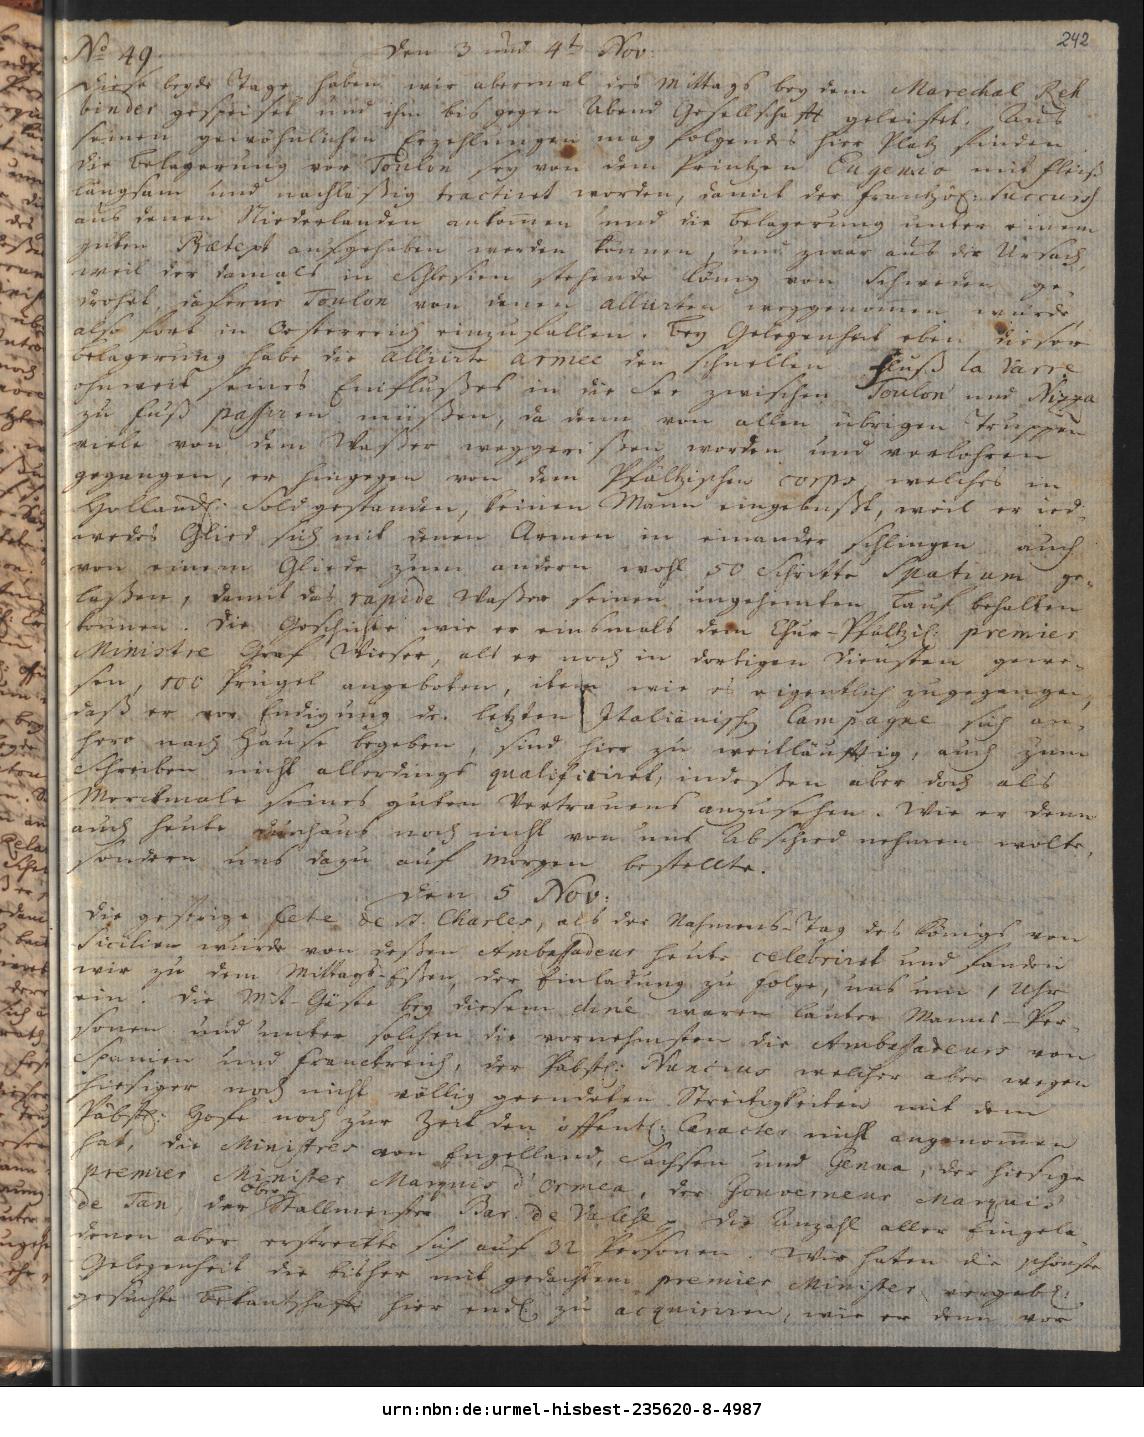 242
No 49. Den 3 und 4t Nov:
Diese beyde Tage haben wir abermal des Mittags bey dem Marechal Reh
binder gespeiset und ihm bis gegen Abend Gesellschafft geleistet. Aus
seinen gewöhnlichen Erzehlungen mag folgendes hier Platz finden.
die Belagerung vor Toulon sey von dem Printzen Eugenio mit Fleiß
langsam und nachläßig tractiret worden, damit der Frantzös: Succurß
aus denen Niederlanden ankom̄en und die Belagerung unter einem
guten Prætext aufgehoben werden können, und zwar aus der Ursach,
weil der damals in Schlesien stehende König von Schweden ge-
drohet, daferne Toulon von denen Alliirten weggenom̄en würde,
also fort in Oesterreich einzufallen. Bey Gelegenheit eben dieser
Belagerung habe die Alliirte Armee den schnellen Fluß la Varre
ohnweit seines Einflußes in die See zwischen Toulon und Nizza
zu Fuß passiren müßen, da denn von allen übrigen Truppen
viele von dem Waßer weggerißen worden und verlohren
gegangen, er hingegen von dem Pfältzischen Corps, welches in
Holländ: Sold gestanden, keinen Mann eingebüßt, weil er ied-
wedes Glied sich mit denen Armen in einander schlingen auch
von einem Gliede zum andern wohl 50 Schritte Spatium ge-
laßen, damit das rapide Waßer seinen ungehemten Lauf behalten
können. Die Geschichte wie er einsmals dem Chur-Pfältzis: premier
Ministre Graf Wieser, als er noch in dortigen Diensten gewe-
sen, 100 Prügel angeboten, item wie es eigentlich zugegangen,
daß er vor Endigung der letzten Italiänisch Campagne sich an-
hero nach Hause begeben, sind hier zu weitläufftig, auch zum
Schreiben nicht allerdings qualificiret, indeßen aber doch als
Merckmale seines guten Vertrauens anzusehen. Wie er denn
auch heute durchaus noch nicht von uns Abschied nehmen wolte,
sondern uns dazu auf morgen bestellte.
Den 5 Nov:
Die gestrige Fete de St. Charles, als der Nahmens-Tag des Königs von
Sicilien wurde von deßen Ambassadeur heute celebriret und fanden
wir zu dem Mittags-Eßen, der Einladung zu folge, uns um 1 Uhr
ein. Die Mit-Gäste bey diesem diné waren lauter Manns-Per-
sonen und unter solchen die vornehmsten die Ambassadeurs von
Spanien und Franckreich, der Päbstl: Nuncius welcher aber wegen
hiesiger noch nicht völlig geendeten Streitigkeiten mit dem
Päbstl: Hofe noch zur Zeit den öffentl: Caracter nicht angenom̄en
hat, die Ministres von Engelland, Sachsen und Genua, der hiesige
premier Minister Marquis d'Ormea, der Gouverneur Marquis
de Tan, der Ober Stallmeister Bar. de Valese, die Anzahl aller Eingela-
denen aber erstreckte sich auf 32 Personen. Wir hatten die schönste
Gelegenheit die bisher mit gedachtem premier Minister vergebl:
gesuchte Bekantschafft hier endl: zu acquiriren, wie er denn vor
urn:nbn:de:urmel-hisbest-235620-8-4987